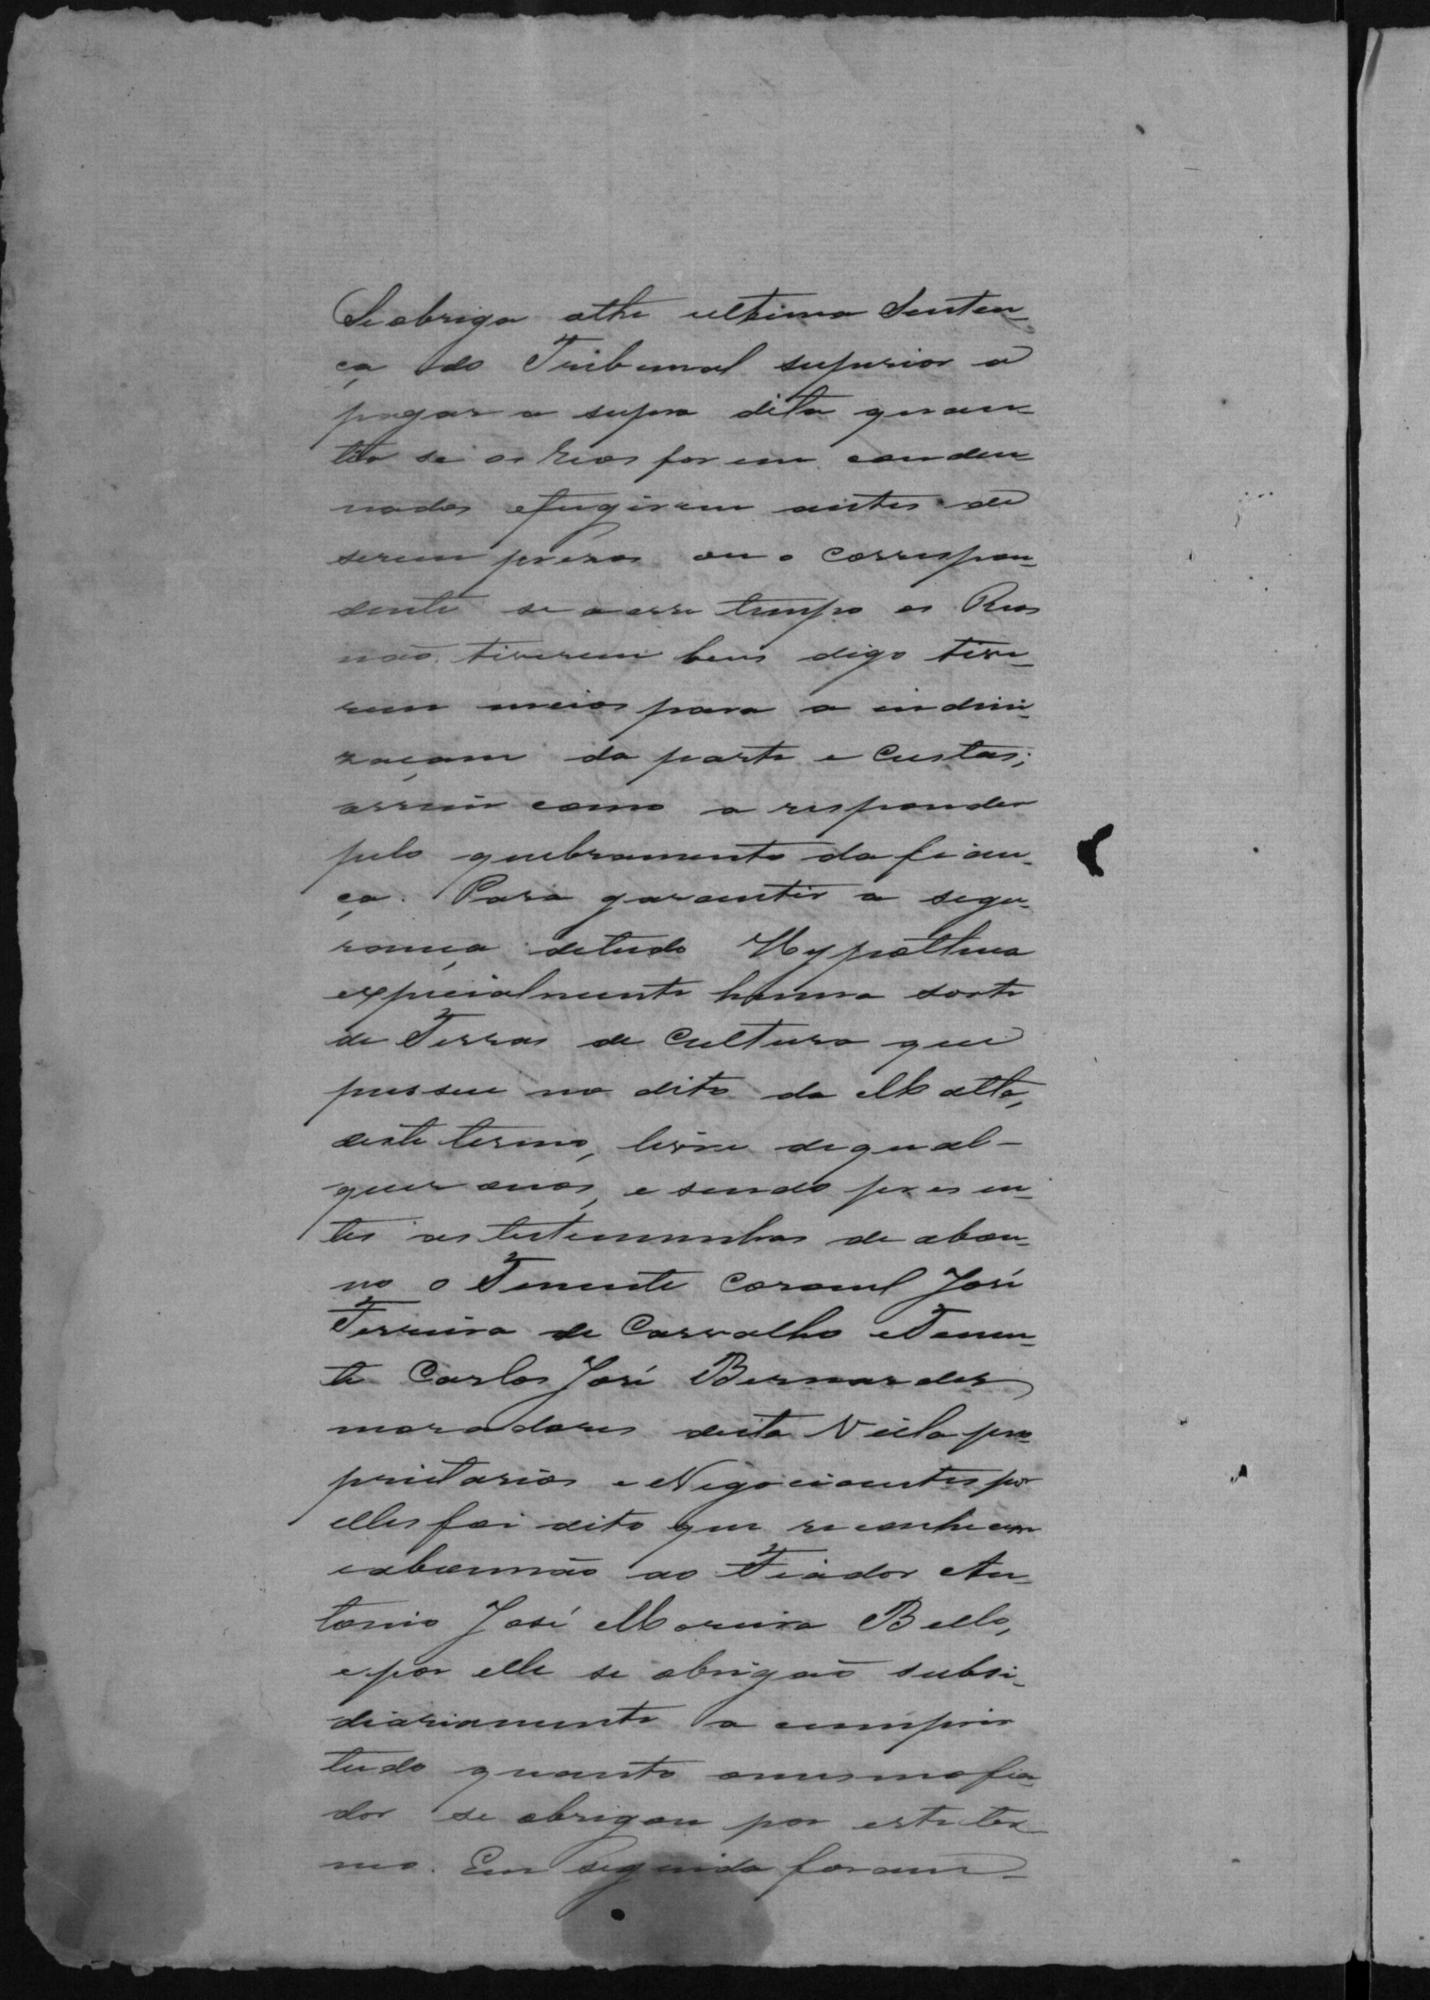 Se obriga athe ultima Senten-
ça do Tribunal superior a
pagar a supra dita quan-
tia se os Reos forem conden
nados efugirem antes de
serem prezos ou o correspon-
dente se a esse tempo os Reos
não tiverem bens digo tive-
rem meios para a indini-
zaçam da parte e Custas;
assim como a responder
pelo quebramento da fian-
ça. Para garantir a segu-
rança detudo Hypotheca
expecialmente huma sorte
de Terras de Cultura que
possue no dito da Matta,
deste termo, livre dequal-
quer onos, e sendo presen-
tes as testemunhas de abon-
no o Tenente Coronel José
Ferreira de Carvalho eTenen-
te Carlos José Bernardes
moradores desta Villa pro
prietarios e Negociantes por
elles foi dito que reconhecem
eabonnão ao Fiador An-
tonio José Moreira Bello,
epor elle se obrigaõ subsi-
diariamente a cumprir
tudo quanto omesmofia-
dor se obrigou por este ter
mo. Em seguida foram-